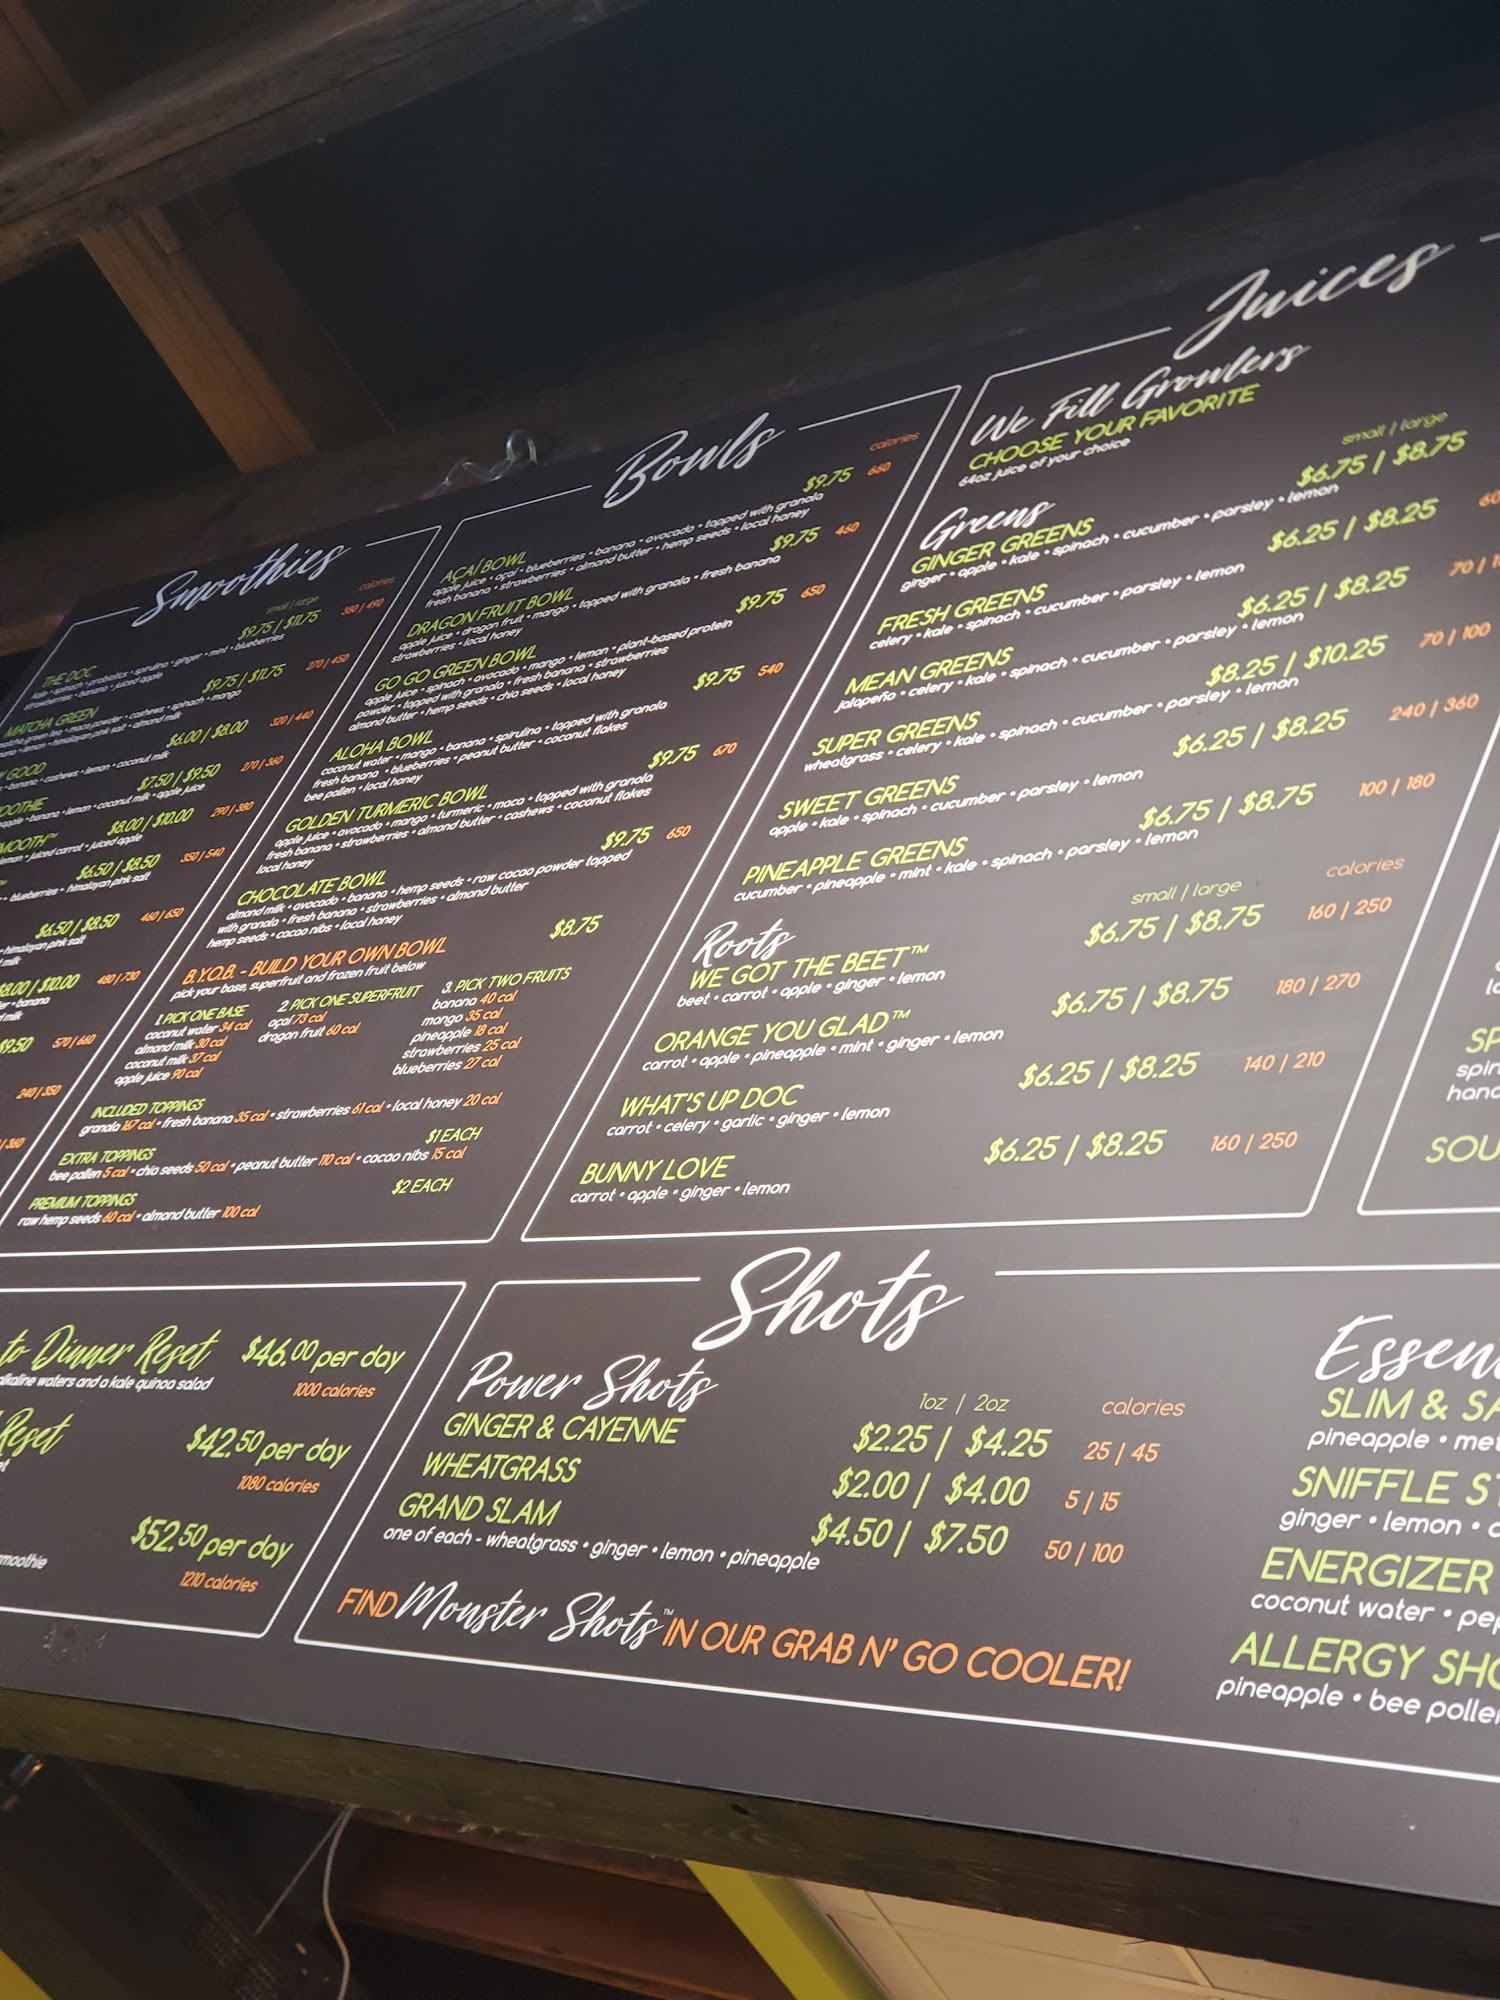 Smoothies
small | large
calories
THE DOC
$9.75 | $11.75
380 | 490
strawberries • banana • juiced apple
MATCHA GREEN
$9.75 | $11.75
270 | 450
$6.00 | $8.00
320 | 440
GOOD
banana • cashews • lemon • coconut milk
$7.50 | $9.50
270 | 360
banana • lemon • coconut milk • apple juice
$8.00 | $10.00
290 | 380
lemon • juiced carrot • juiced apple
$6.50 | $8.50
350 | 540
blueberries • himalayan pink salt
$6.50 | $8.50
460 | 650
himalayan pink salt
milk
$8.00 | $10.00
480 | 730
banana
milk
$9.50
570 | 660
240 | 350
Bowls
calories
AÇAÍ BOWL
$9.75
680
apple juice • açaí • blueberries • banana • avocado • topped with granola
fresh banana • strawberries • almond butter • hemp seeds • local honey
DRAGON FRUIT BOWL
$9.75
460
apple juice • dragon fruit • mango • topped with granola • fresh banana
strawberries • local honey
GO GO GREEN BOWL
$9.75
650
apple juice • spinach • avocado • mango • lemon • plant-based protein
powder • topped with granola • fresh banana • strawberries
almond butter • hemp seeds • chia seeds • local honey
ALOHA BOWL
$9.75
540
coconut water • mango • banana • spirulina • topped with granola
fresh banana • blueberries • peanut butter • coconut flakes
bee pollen • local honey
GOLDEN TURMERIC BOWL
$9.75
670
apple juice • avocado • mango • turmeric • maca • topped with granola
fresh banana • strawberries • almond butter • cashews • coconut flakes
local honey
CHOCOLATE BOWL
$9.75
650
almond milk • avocado • banana • hemp seeds • raw cacao powder topped
with granola • fresh banana • strawberries • almond butter
hemp seeds • cacao nibs • local honey
B.Y.O.B. - BUILD YOUR OWN BOWL
$8.75
pick your base, superfruit and frozen fruit below
1. PICK ONE BASE
coconut water 34 cal
almond milk 30 cal
coconut milk 37 cal
apple juice 90 cal
2. PICK ONE SUPERFRUIT
açaí 73 cal
dragon fruit 60 cal
3. PICK TWO FRUITS
banana 40 cal
mango 35 cal
pineapple 18 cal
strawberries 25 cal
blueberries 27 cal
INCLUDED TOPPINGS
granola 167 cal • fresh banana 35 cal • strawberries 61 cal • local honey 20 cal
EXTRA TOPPINGS
$1 EACH
bee pollen 5 cal • chia seeds 50 cal • peanut butter 110 cal • cacao nibs 15 cal
PREMIUM TOPPINGS
$2 EACH
raw hemp seeds 60 cal • almond butter 100 cal
Juices
We Fill Growlers
CHOOSE YOUR FAVORITE
64oz juice of your choice
small | large
Greens
GINGER GREENS
$6.75 | $8.75
ginger • apple • kale • spinach • cucumber • parsley • lemon
FRESH GREENS
$6.25 | $8.25
celery • kale • spinach • cucumber • parsley • lemon
MEAN GREENS
$6.25 | $8.25
jalapeño • celery • kale • spinach • cucumber • parsley • lemon
SUPER GREENS
$8.25 | $10.25
70 | 100
wheatgrass • celery • kale • spinach • cucumber • parsley • lemon
SWEET GREENS
$6.25 | $8.25
240 | 360
apple • kale • spinach • cucumber • parsley • lemon
PINEAPPLE GREENS
$6.75 | $8.75
100 | 180
cucumber • pineapple • mint • kale • spinach • parsley • lemon
small | large
calories
Roots
WE GOT THE BEET™
$6.75 | $8.75
160 | 250
beet • carrot • apple • ginger • lemon
ORANGE YOU GLAD™
$6.75 | $8.75
180 | 270
carrot • apple • pineapple • mint • ginger • lemon
WHAT'S UP DOC
$6.25 | $8.25
140 | 210
carrot • celery • garlic • ginger • lemon
BUNNY LOVE
$6.25 | $8.25
160 | 250
carrot • apple • ginger • lemon
to Dinner Reset
$46.00 per day
alkaline waters and a kale quinoa salad
1000 calories
Reset
$42.50 per day
1080 calories
$52.50 per day
smoothie
1210 calories
Shots
Power Shots
1oz | 2oz
calories
GINGER & CAYENNE
$2.25 | $4.25
25 | 45
WHEATGRASS
$2.00 | $4.00
5 | 15
GRAND SLAM
$4.50 | $7.50
50 | 100
one of each - wheatgrass • ginger • lemon • pineapple
FIND Monster Shots™ IN OUR GRAB N' GO COOLER!
SLIM &
pineapple •
SNIFFLE
ginger • lemon •
ENERGIZER
coconut water •
ALLERGY
pineapple • bee